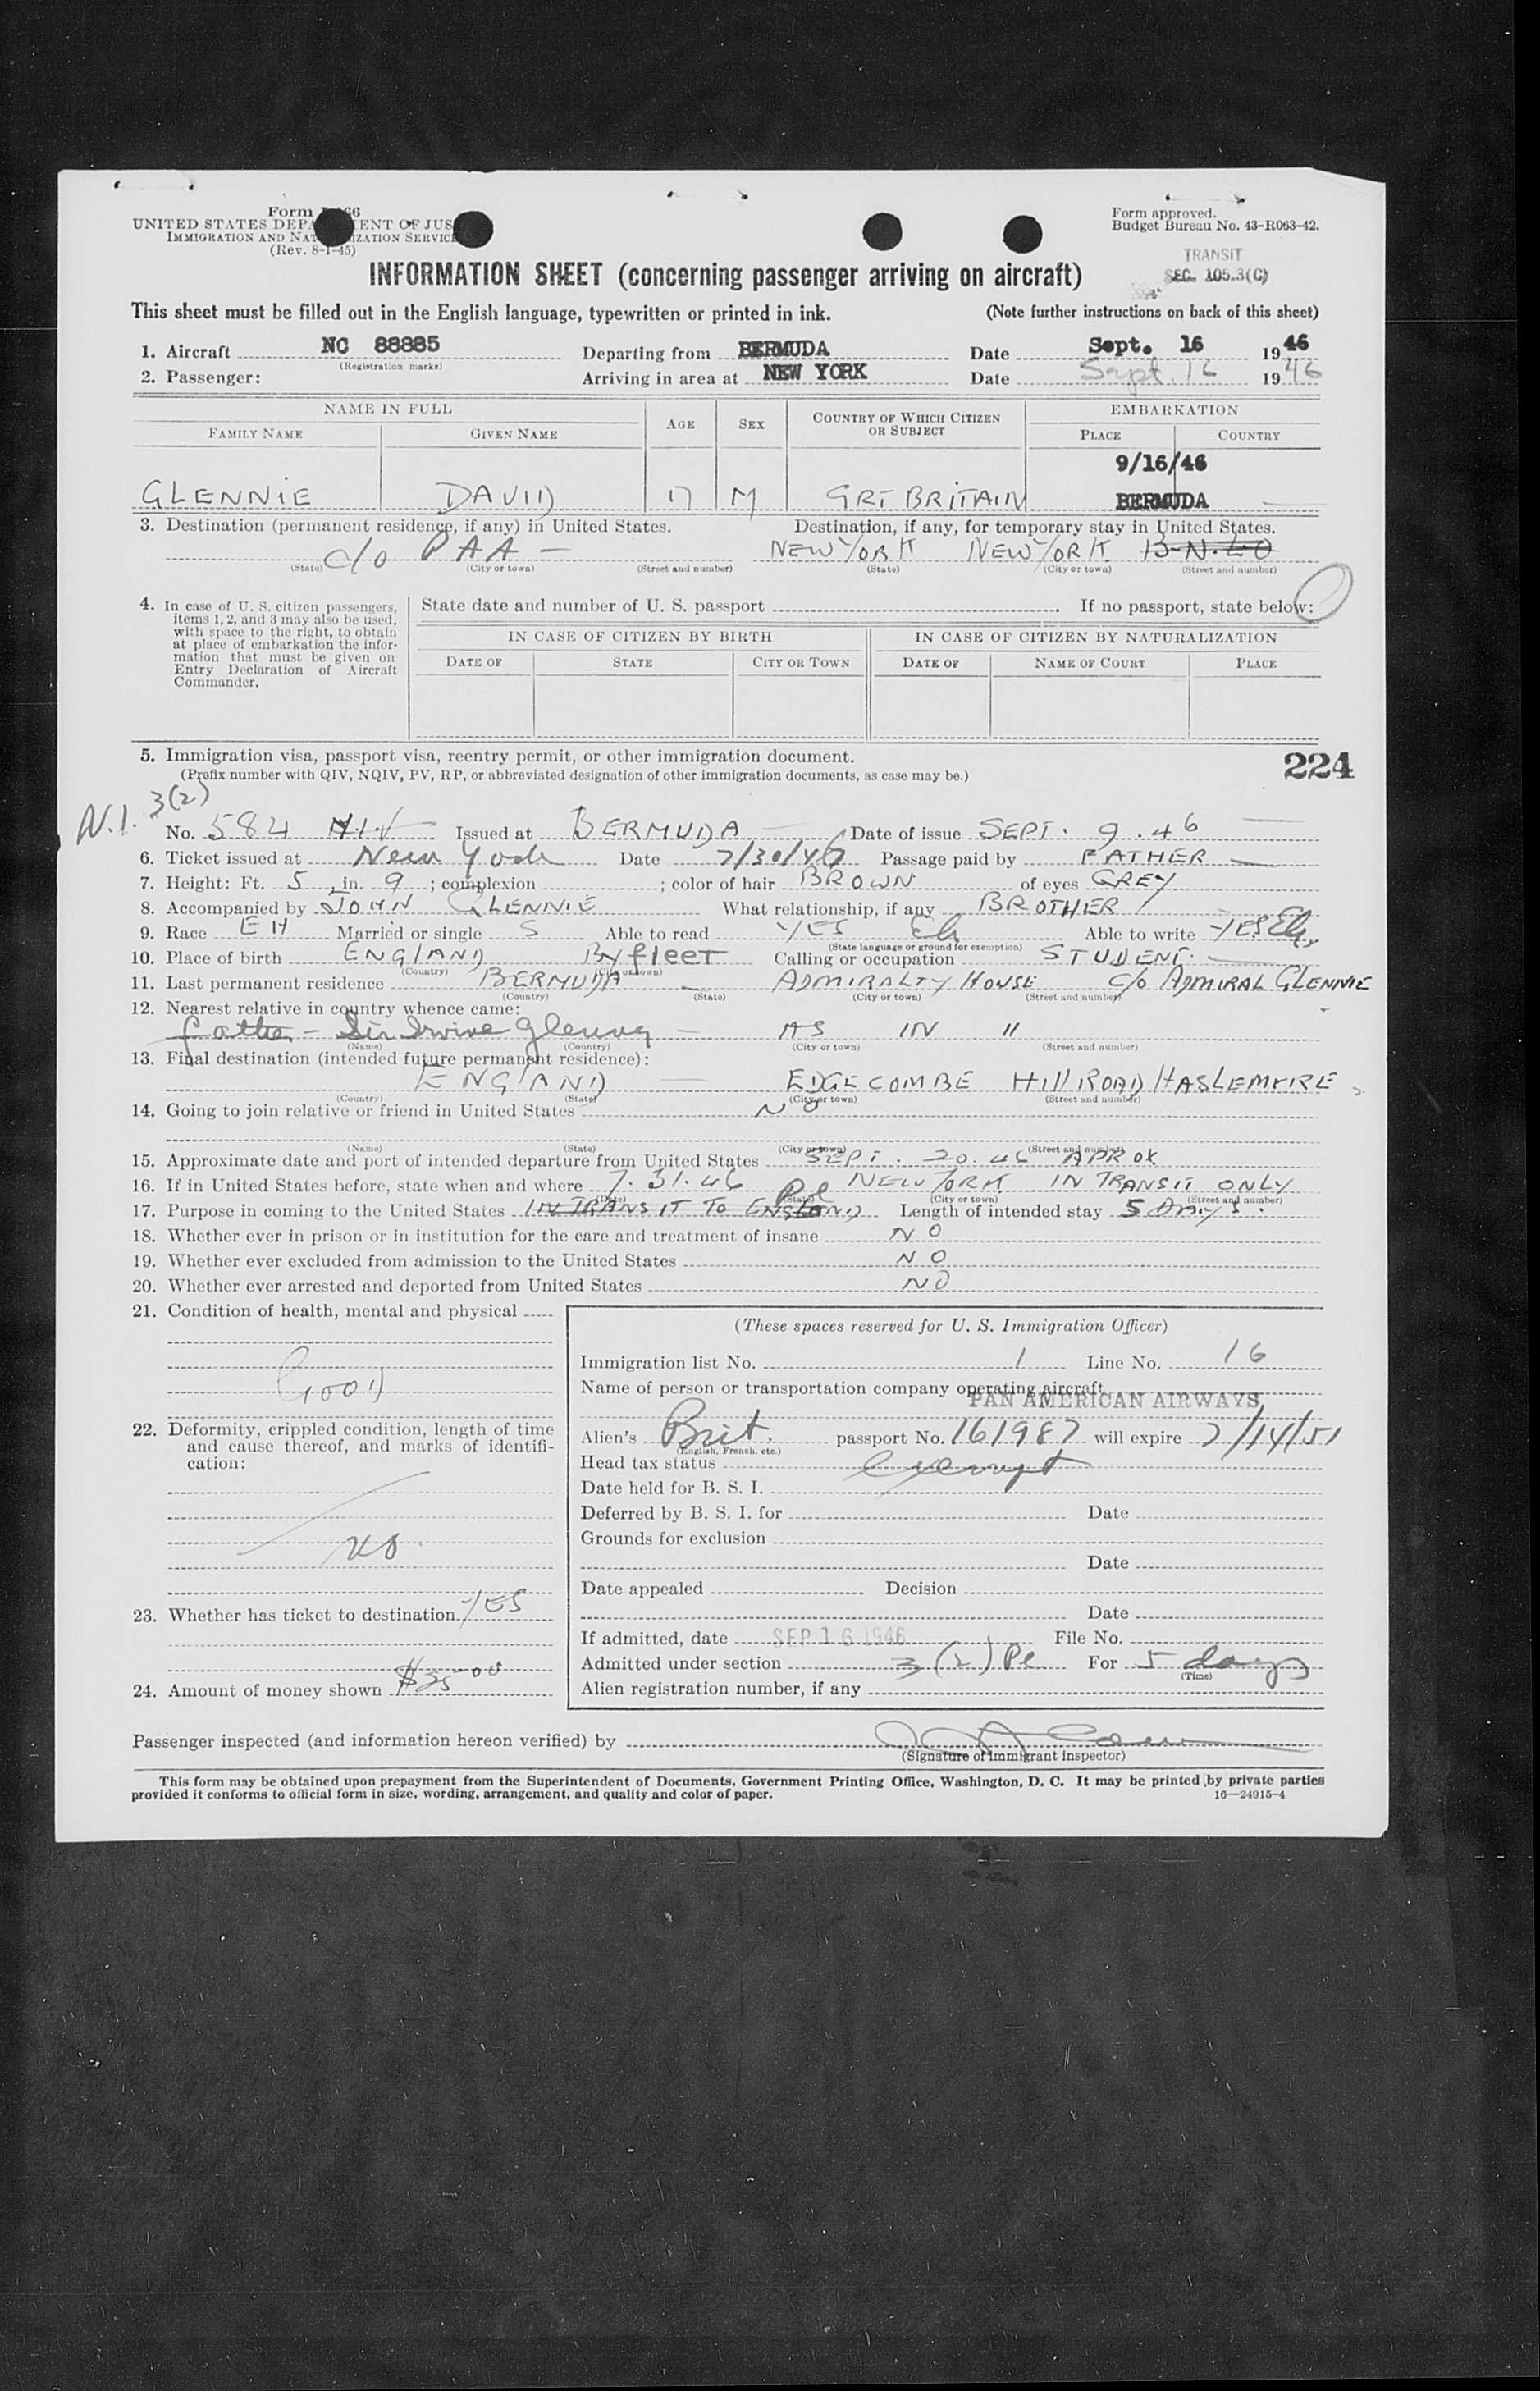 Form I-466
UNITED STATES DEPARTMENT OF JUSTICE
IMMIGRATION AND NATURALIZATION SERVICE
(Rev. 8-1-45)
Form approved.
Budget Bureau No. 43-R063-42.
TRANSIT
SEC. 105.3(C)
INFORMATION SHEET (concerning passenger arriving on aircraft)
This sheet must be filled out in the English language, typewritten or printed in ink. (Note further instructions on back of this sheet)
1. Aircraft NC 88885 Departing from BERMUDA Date Sept. 16 1946
(Registration marks)
2. Passenger: Arriving in area at NEW YORK Date Sept. 16 1946
NAME IN FULL AGE SEX COUNTRY OF WHICH CITIZEN OR SUBJECT EMBARKATION
FAMILY NAME GIVEN NAME PLACE COUNTRY
9/16/46
GLENNIE DAVID 17 M GRT BRITAIN BERMUDA
3. Destination (permanent residence, if any) in United States. Destination, if any, for temporary stay in United States.
c/o PAA — NEW YORK NEW YORK
(State) (City or town) (Street and number) (State) (City or town) (Street and number)
4. In case of U. S. citizen passengers, items 1, 2, and 3 may also be used, with space to the right, to obtain at place of embarkation the information that must be given on Entry Declaration of Aircraft Commander.
State date and number of U. S. passport If no passport, state below:
IN CASE OF CITIZEN BY BIRTH IN CASE OF CITIZEN BY NATURALIZATION
DATE OF STATE CITY OR TOWN DATE OF NAME OF COURT PLACE
5. Immigration visa, passport visa, reentry permit, or other immigration document.
(Prefix number with QIV, NQIV, PV, RP, or abbreviated designation of other immigration documents, as case may be.)
224
N.I. 3(2)
No. 584 Issued at BERMUDA Date of issue SEPT. 9. 46
6. Ticket issued at New York Date 7/30/46 Passage paid by FATHER
7. Height: Ft. 5, in. 9; complexion ; color of hair BROWN of eyes GREY
8. Accompanied by JOHN GLENNIE What relationship, if any BROTHER
9. Race EH Married or single S Able to read YES Eh Able to write YES
(State language or ground for exemption)
10. Place of birth ENGLAND Byfleet Calling or occupation STUDENT.
(Country) (City or town)
11. Last permanent residence BERMUDA — ADMIRALTY HOUSE c/o ADMIRAL GLENNIE
(Country) (State) (City or town) (Street and number)
12. Nearest relative in country whence came:
father — Sir Irvine Glenny — AS IN "
(Name) (Country) (City or town) (Street and number)
13. Final destination (intended future permanent residence):
ENGLAND — EDGECOMBE HILL ROAD HASLEMERE
(Country) (State) (City or town) (Street and number)
14. Going to join relative or friend in United States NO
(Name) (State) (City or town) (Street and number)
15. Approximate date and port of intended departure from United States SEPT. 20. 46 APROX
16. If in United States before, state when and where 7. 31. 46 NEW YORK IN TRANSIT ONLY
(Date) (State) (City or town) (Street and number)
17. Purpose in coming to the United States IN TRANSIT TO ENGLAND Length of intended stay 5 DAYS.
18. Whether ever in prison or in institution for the care and treatment of insane NO
19. Whether ever excluded from admission to the United States NO
20. Whether ever arrested and deported from United States NO
21. Condition of health, mental and physical
GOOD
22. Deformity, crippled condition, length of time and cause thereof, and marks of identification:
no
23. Whether has ticket to destination. YES
24. Amount of money shown $35.00
(These spaces reserved for U. S. Immigration Officer)
Immigration list No. 1 Line No. 16
Name of person or transportation company operating aircraft
PAN AMERICAN AIRWAYS
Alien's Brit. passport No. 161987 will expire 7/14/51
(English, French, etc.)
Head tax status exempt
Date held for B. S. I.
Deferred by B. S. I. for Date
Grounds for exclusion
Date
Date appealed Decision
Date
If admitted, date SEP 16 1946 File No.
Admitted under section 3(2) Pl For 5 days
(Time)
Alien registration number, if any
Passenger inspected (and information hereon verified) by
(Signature of immigrant inspector)
This form may be obtained upon prepayment from the Superintendent of Documents, Government Printing Office, Washington, D. C. It may be printed by private parties
provided it conforms to official form in size, wording, arrangement, and quality and color of paper. 16—24915-4